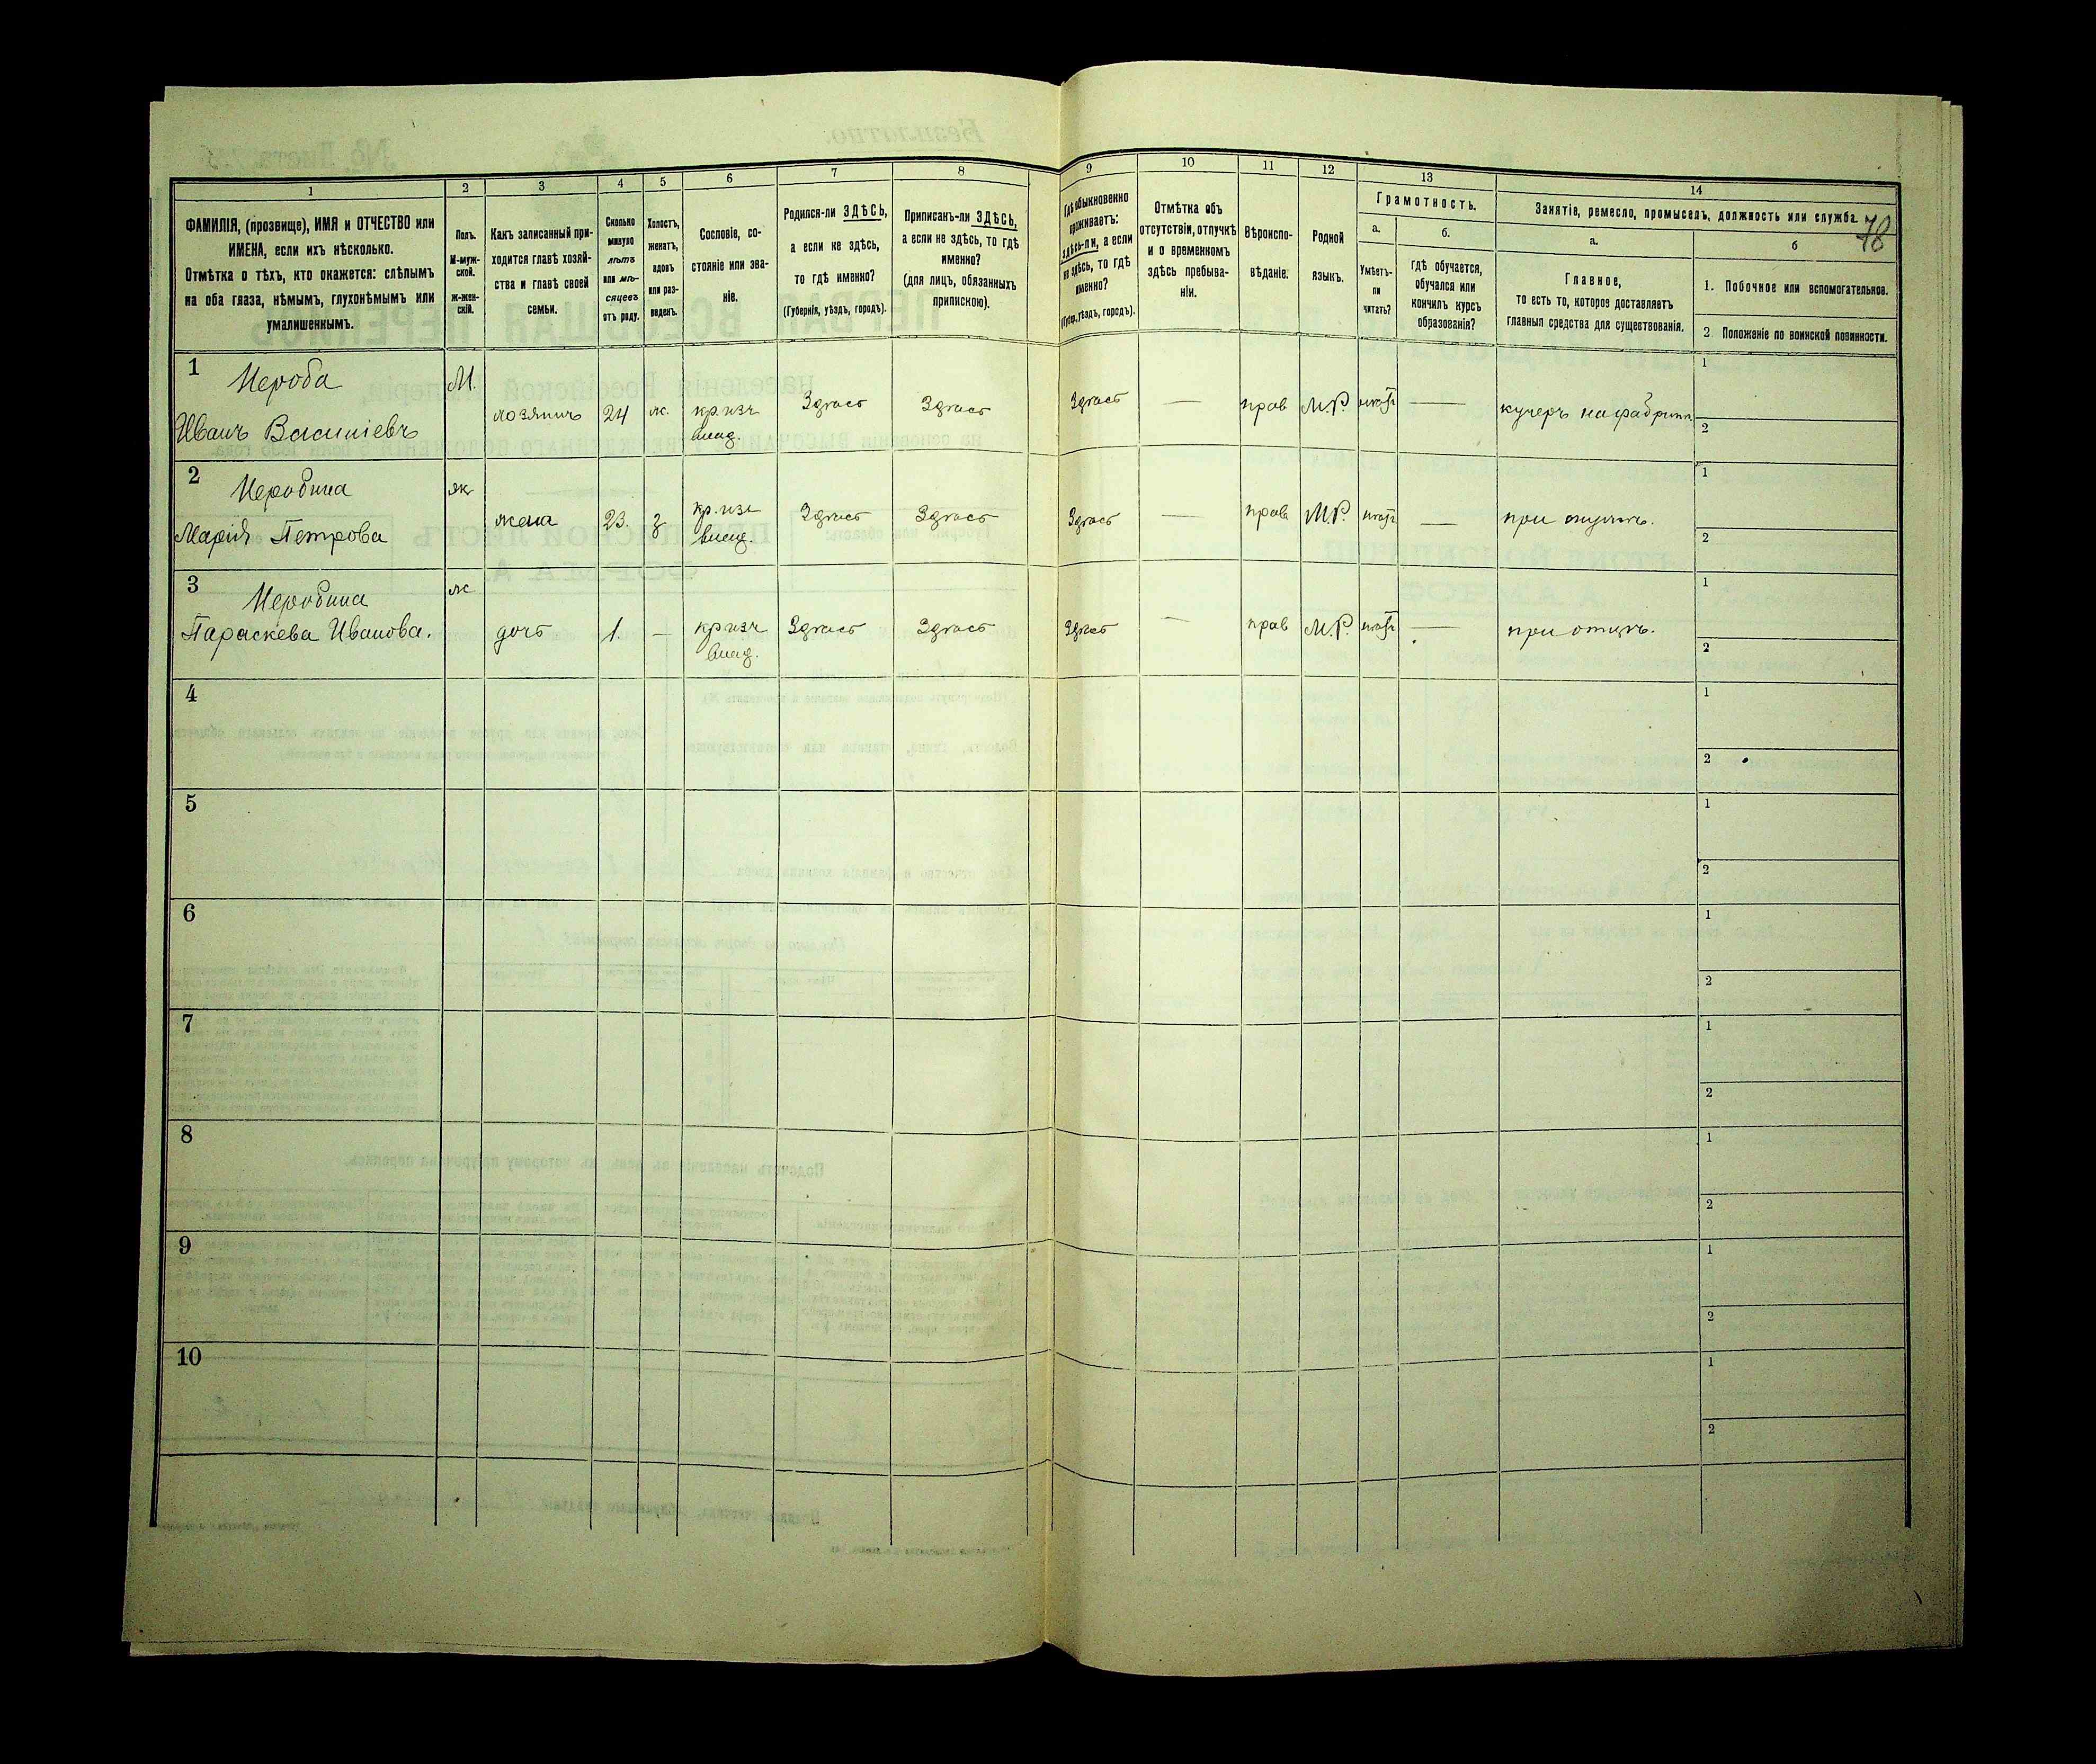 78
1 2 3 4 5 6 7 8 9 10 11 12 13 14
ФАМИЛІЯ, (прозвище), ИМЯ и ОТЧЕСТВО или
ИМЕНА, если ихъ нѣсколько.
Отмѣтка о тѣхъ, кто окажется: слѣпымъ
на оба глаза, нѣмымъ, глухонѣмымъ или
умалишеннымъ.
Полъ.
М-муж-
ской.
Ж-жен-
скій.
Какъ записанный при-
ходится главѣ хозяй-
ства и главѣ своей
семьи.
Сколько
минуло
лѣтъ
или мѣ-
сяцевъ
отъ роду.
Холостъ,
женатъ,
вдовъ
или раз-
веденъ.
Сословіе, со-
стояніе или зва-
ніе.
Родился-ли ЗДѢСЬ,
а если не здѣсь,
то гдѣ именно?
(Губернія, уѣздъ, городъ).
Приписанъ-ли ЗДѢСЬ,
а если не здѣсь, то гдѣ
именно?
(для лицъ, обязанныхъ
припискою).
Гдѣ обыкновенно
проживаетъ:
здѣсь-ли, а если
не здѣсь, то гдѣ
именно?
(Губер., уѣздъ, городъ).
Отмѣтка объ
отсутствіи, отлучкѣ
и о временномъ
здѣсь пребыва-
ніи.
Вѣроиспо-
вѣданіе.
Родной
языкъ.
Грамотность.
а.
Умѣетъ-
ли
читать?
б.
гдѣ обучается,
обучался или
кончилъ курсъ
образованія?
Занятіе, ремесло, промыселъ, должность или служба.
а.
Главное,
то есть то, которое доставляетъ
главныя средства для существованія.
б
1. Побочное или вспомогательное.
2 Положеніе по воинской повинности.
1
Иванъ Василіевъ
М. 24 ж. кр. изъ влад. Здѣсь Здѣсь Здѣсь — прав М.Р. — кучеръ на фабрики
1
2
2
Марія Петрова
ж жена 23. з кр. изъ влад. Здѣсь Здѣсь Здѣсь — прав М.Р. — при
1
2
3
Параскева Иванова.
ж дочь 1. — кр изъ влад. Здѣсь Здѣсь Здѣсь — прав М.Р. — при отцѣ.
1
2
4
1
2
5
1
2
6
1
2
7
1
2
8
1
2
9
1
2
10
1
2